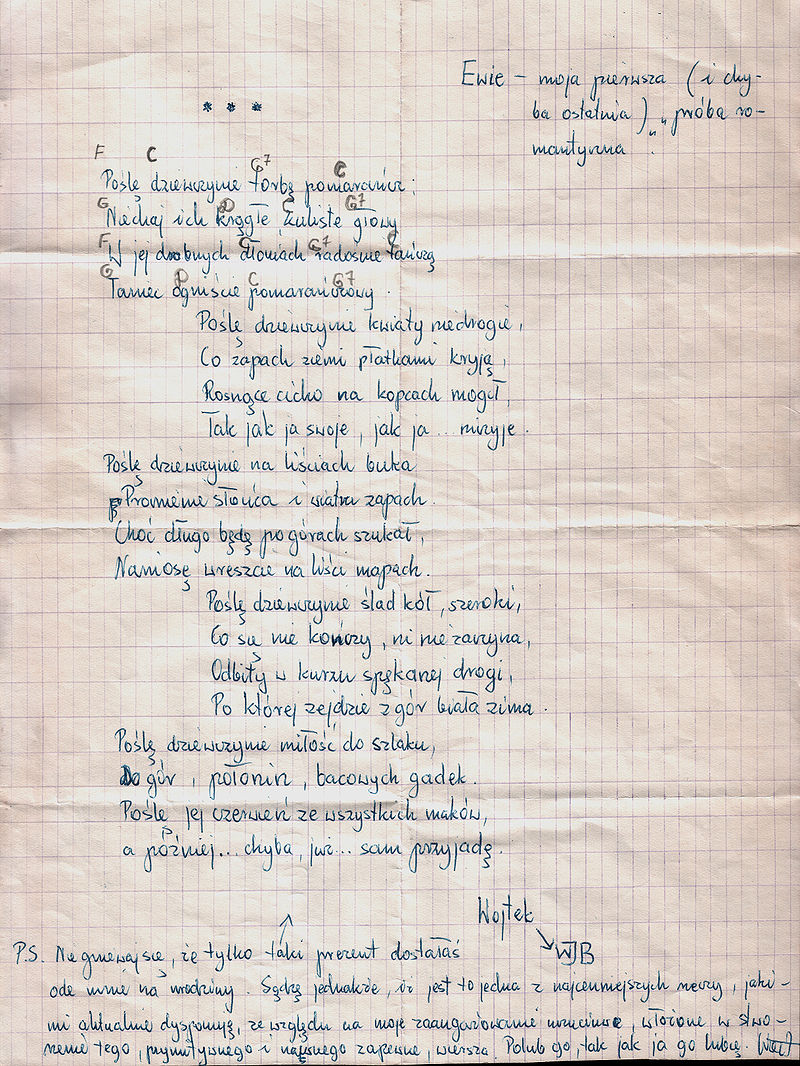 Ewie – moja pierwsza (i chy-
ba ostatnia) „próba ro-
mantyczna".
* * *
F C G7 C
Poślę dziewczynie torbę pomarańcz;
G D C G7
Niechaj ich krągłe żuliste głowy
F C G7 C
W jej drobnych dłoniach radośnie tańczą
G D C G7
Taniec ogniście pomarańczowy.
Poślę dziewczynie kwiaty niedrogie,
Co zapach ziemi płatkami kryją,
Rosnące cicho na kopcach mogił,
Tak jak ja swoje, jak ja... niczyje.
Poślę dziewczynie na liściach buka
Promienie słońca i wiatru zapach.
Choć długo będę po górach szukał,
Naniosę wreszcie na liści mapach.
Poślę dziewczynie ślad kół, szeroki,
Co się nie kończy, ni nie zaczyna,
Odbity w kurzu spękanej drogi,
Po której zejdzie z gór biała zima.
Poślę dziewczynie miłość do szlaku,
Do gór, połonin, bacowych gadek.
Poślę jej czerwień ze wszystkich maków,
a później... chyba, już... sam przyjadę.
Wojtek
WJB
P.S. Nie gniewaj się, że tylko taki prezent dostałaś
ode mnie na urodziny. Sądzę jednakże, iż jest to jedna z najcenniejszych rzeczy, jaki-
mi aktualnie dysponuję, ze względu na moje zaangażowanie uczuciowe, włożone w stwo-
rzenie tego, prymitywnego i naiwnego zapewne, wiersza. Polub go, tak jak ja go lubię.